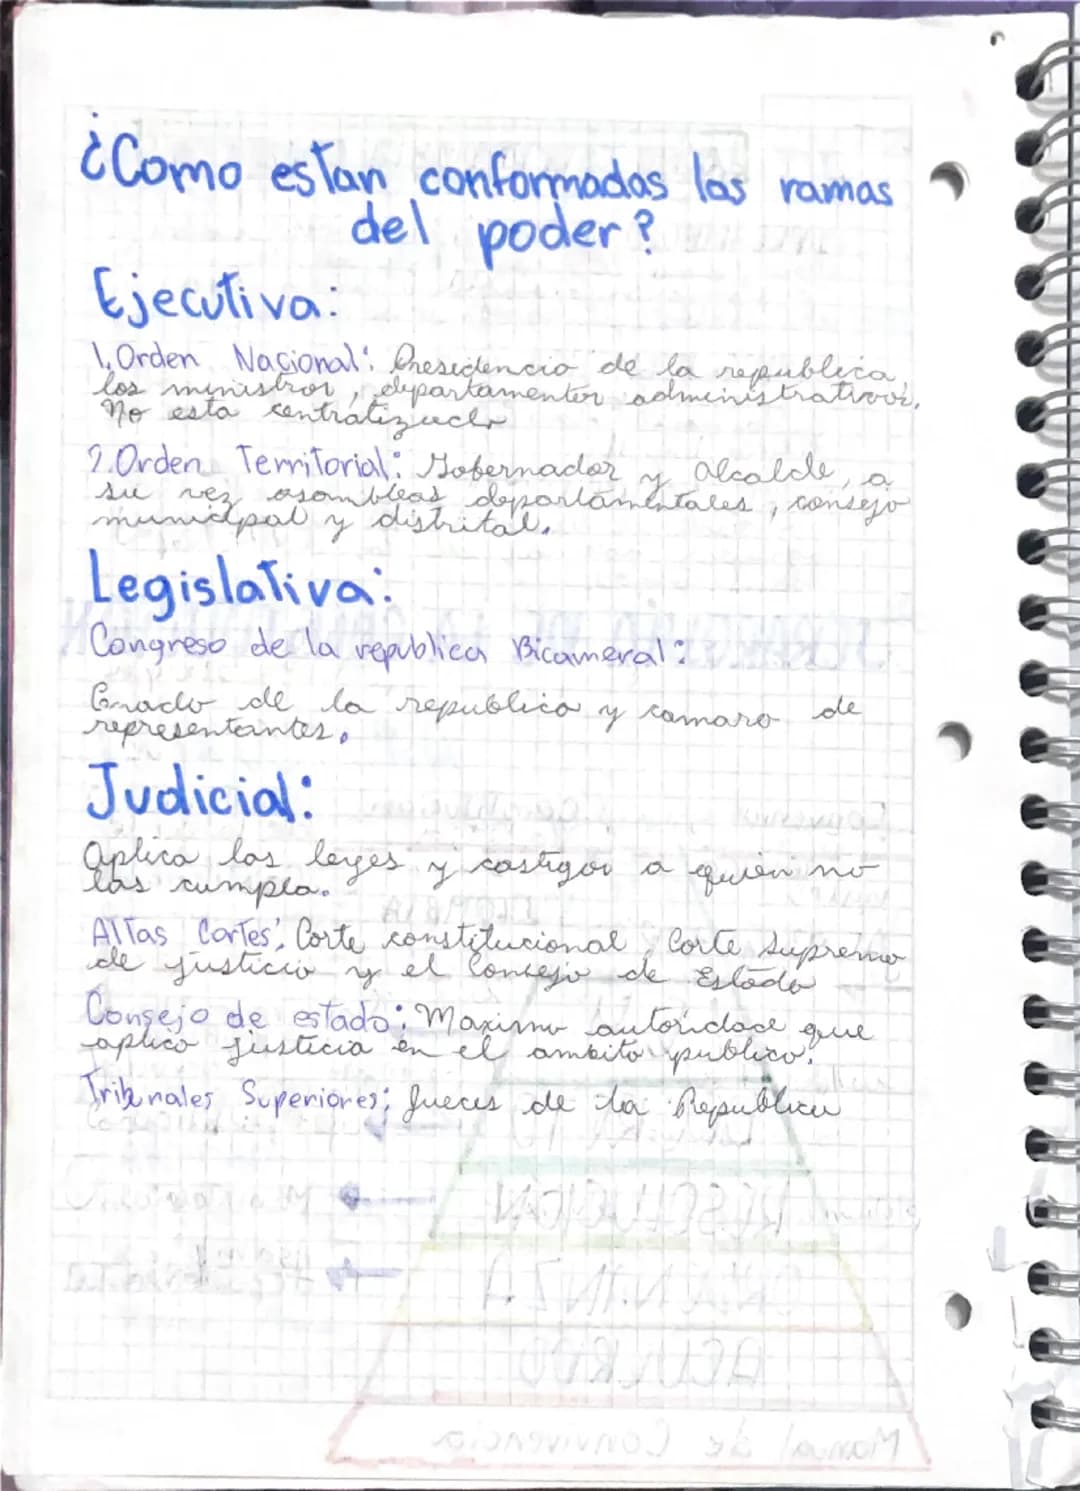 ¿Como estan conformadas las ramas
del poder?
Ejecutiva:
1. Orden Nacional: Presidencia de la republica,
los ministros, departamentos administrativos.
No esta
2. Orden Territorial: Gobernador y alcalde, a
su vez asambleas departamentales, consejo
municipal y distrital.
Legislativa:
Congreso de la republica Bicameral:
Senado de la republica y camara de
representantes.
Judicial:
aplica las leyes y castigar a quien no
las cumpla.
Altas Cortes: Corte constitucional, Corte suprema
de justicia y el Concejo de Estado
Consejo de estado: Maxima autoridad que
aplica justicia en el ambito publico.
Tribunales Superiores: Jueces de la Republica
RESOLUCION
ACUERDO
Manual de Convivencia